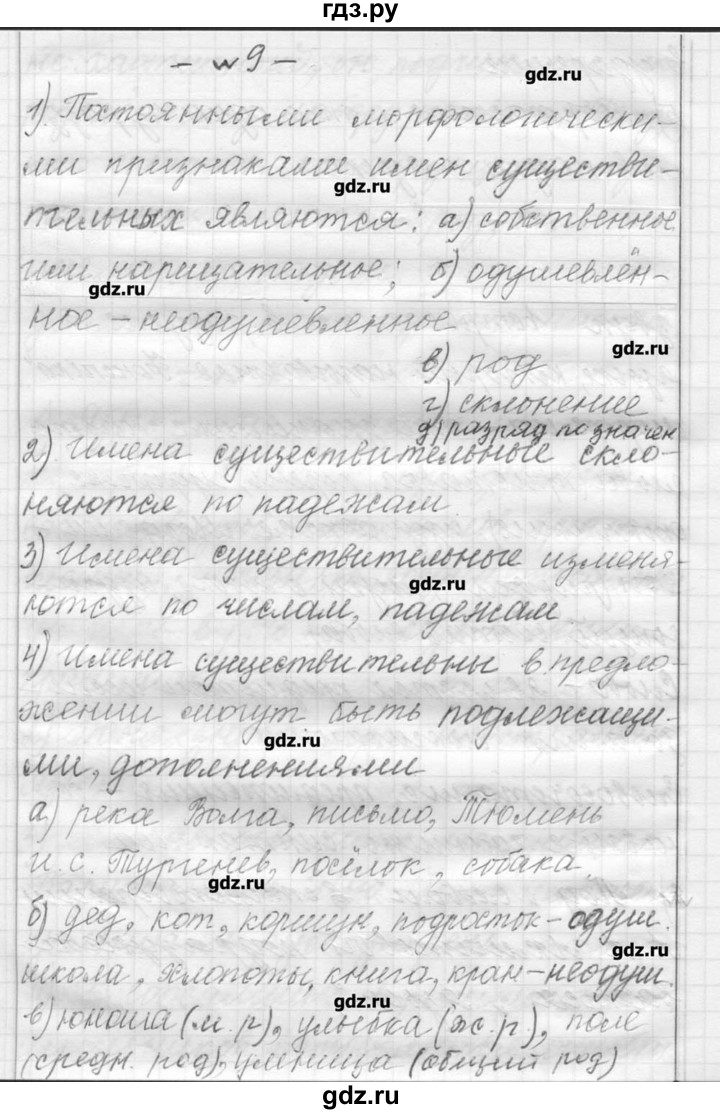 гдз.ру
- №9 -
gdz.ru
1) Постоянными морфологически-
ми признаками имен существи-
gdz.ru
тельных являются: а) собственное
или нарицательное; б) одушевлён-
gdz.ru
ное - неодушевленное
gdz.ru
в) род
г) склонение
д) разряд по значен
2) Имена существительные скло-
няются по падежам.
3) Имена существительные изменя-
gdz.ru
ются по числам, падежам
4) Имена существительны в предло-
жении могут быть подлежащи-
gdz.ru
ми, дополнениями
а) река Волга, письмо, Тюмень
И.С. Тургенев, посёлок, собака.
gdz.ru
б) дед, кот, коршун, подросток - одуш.
gdz.ru
школа, хлопоты, книга, кран - неодуш.
gdz.ru
в) юноша (м.р), улыбка (ж.р.), поле
(средн. род), умница (общий род)
gdz.ru